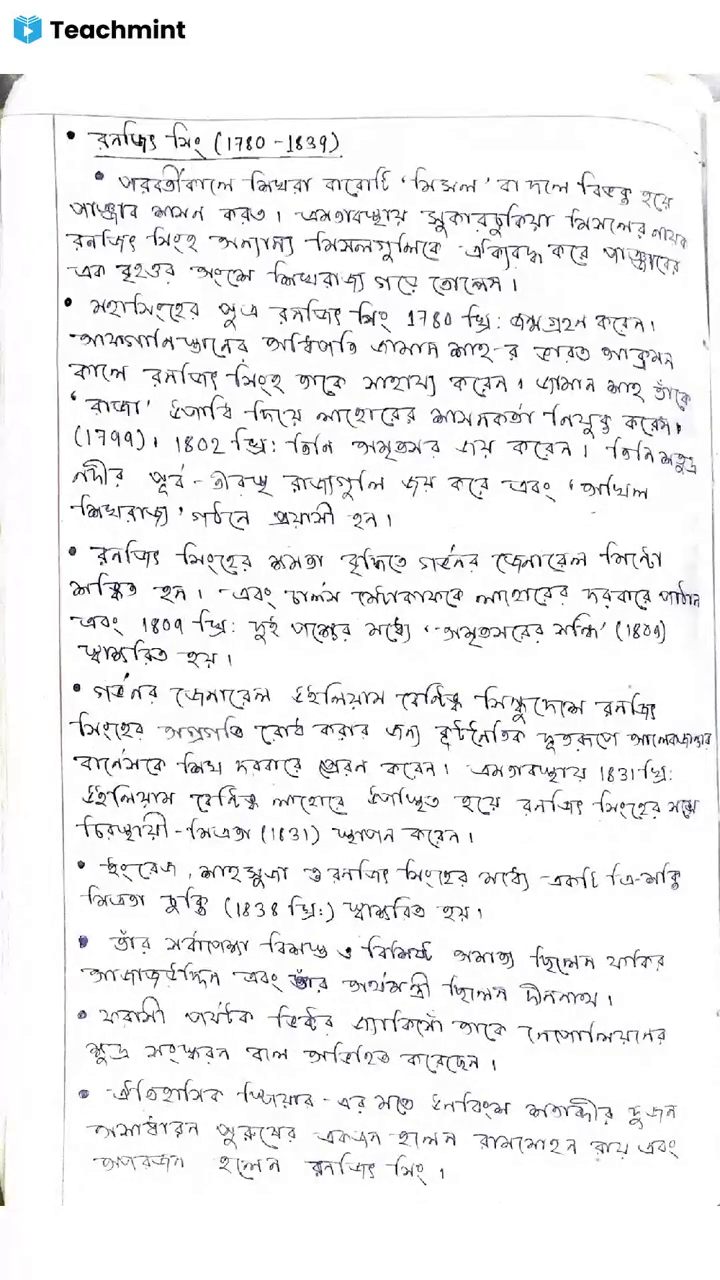 Teachmint
• রনজিৎ সিং (1780 - 1839)
• পরবর্তীকালে শিখরা বারোটি 'মিসল' বা দলে বিভক্ত হয়ে
পাঞ্জাব শাসন করত। এমতাবস্থায় সুকারচুকিয়া মিসলের নায়ক
রনজিৎ সিংহ অন্যান্য মিসলগুলিকে ঐক্যবদ্ধ করে পাঞ্জাবের
এক বৃহত্তর অংশে শিখরাজ্য গড়ে তোলেন।
• মহাসিংহের পুত্র রনজিৎ সিং 1780 খ্রি: জন্মগ্রহন করেন।
আফগানিস্তানের অধিপতি জামান শাহ-র ভারত আক্রমন
কালে রনজিৎ সিংহ তাকে সাহায্য করেন। জামান শাহ তাঁকে
'রাজা' উপাধি দিয়ে লাহোরের শাসনকর্তা নিযুক্ত করেন।
(1799)। 1802 খ্রি: তিনি অমৃতসর জয় করেন। তিনি শতদ্রু
নদীর পূর্ব - তীরস্থ রাজ্যগুলি জয় করে এবং 'অখিল
শিখরাজ্য' গঠনে প্রয়াসী হন।
• রনজিৎ সিংহের ক্ষমতা বৃদ্ধিতে গভর্নর জেনারেল মিন্টো
শঙ্কিত হন। এবং চার্লস মেটকাফকে লাহোরের দরবারে পাঠান
এবং 1809 খ্রি: দুই পক্ষের মধ্যে 'অমৃতসরের সন্ধি' (1809)
স্বাক্ষরিত হয়।
• গভর্নর জেনারেল উইলিয়াম বেন্টিঙ্ক সিন্ধুদেশে রনজিৎ
সিংহের অগ্রগতি রোধ করার জন্য কূটনৈতিক দূতরূপে আলেকজান্ডার
বার্নেসকে শিখ দরবারে প্রেরন করেন। এমতাবস্থায় 1831 খ্রি:
উইলিয়াম বেন্টিঙ্ক লাহোরে উপস্থিত হয়ে রনজিৎ সিংহের সঙ্গে
চিরস্থায়ী - মিত্রতা (1831) স্থাপন করেন।
• ইংরেজ, শাহসুজা ও রনজিৎ সিংহের মধ্যে একটি ত্রি-শক্তি
মিত্রতা চুক্তি (1838 খ্রি:) স্বাক্ষরিত হয়।
• তাঁর সর্বাপেক্ষা বিশ্বস্ত ও বিশিষ্ট অমাত্য ছিলেন ফকির
আজাজউদ্দিন এবং তাঁর অর্থমন্ত্রী ছিলেন দীননাথ।
• ফরাসী পর্যটক ভিক্টর জ্যাকিমোঁ তাকে নেপোলিয়নের
ক্ষুদ্র সংস্করন বলে অভিহিত করেছেন।
• ঐতিহাসিক স্পিয়ার - এর মতে উনবিংশ শতাব্দীর দুজন
অসাধারন পুরুষের একজন হলেন রামমোহন রায় এবং
অপরজন হলেন রনজিৎ সিং।